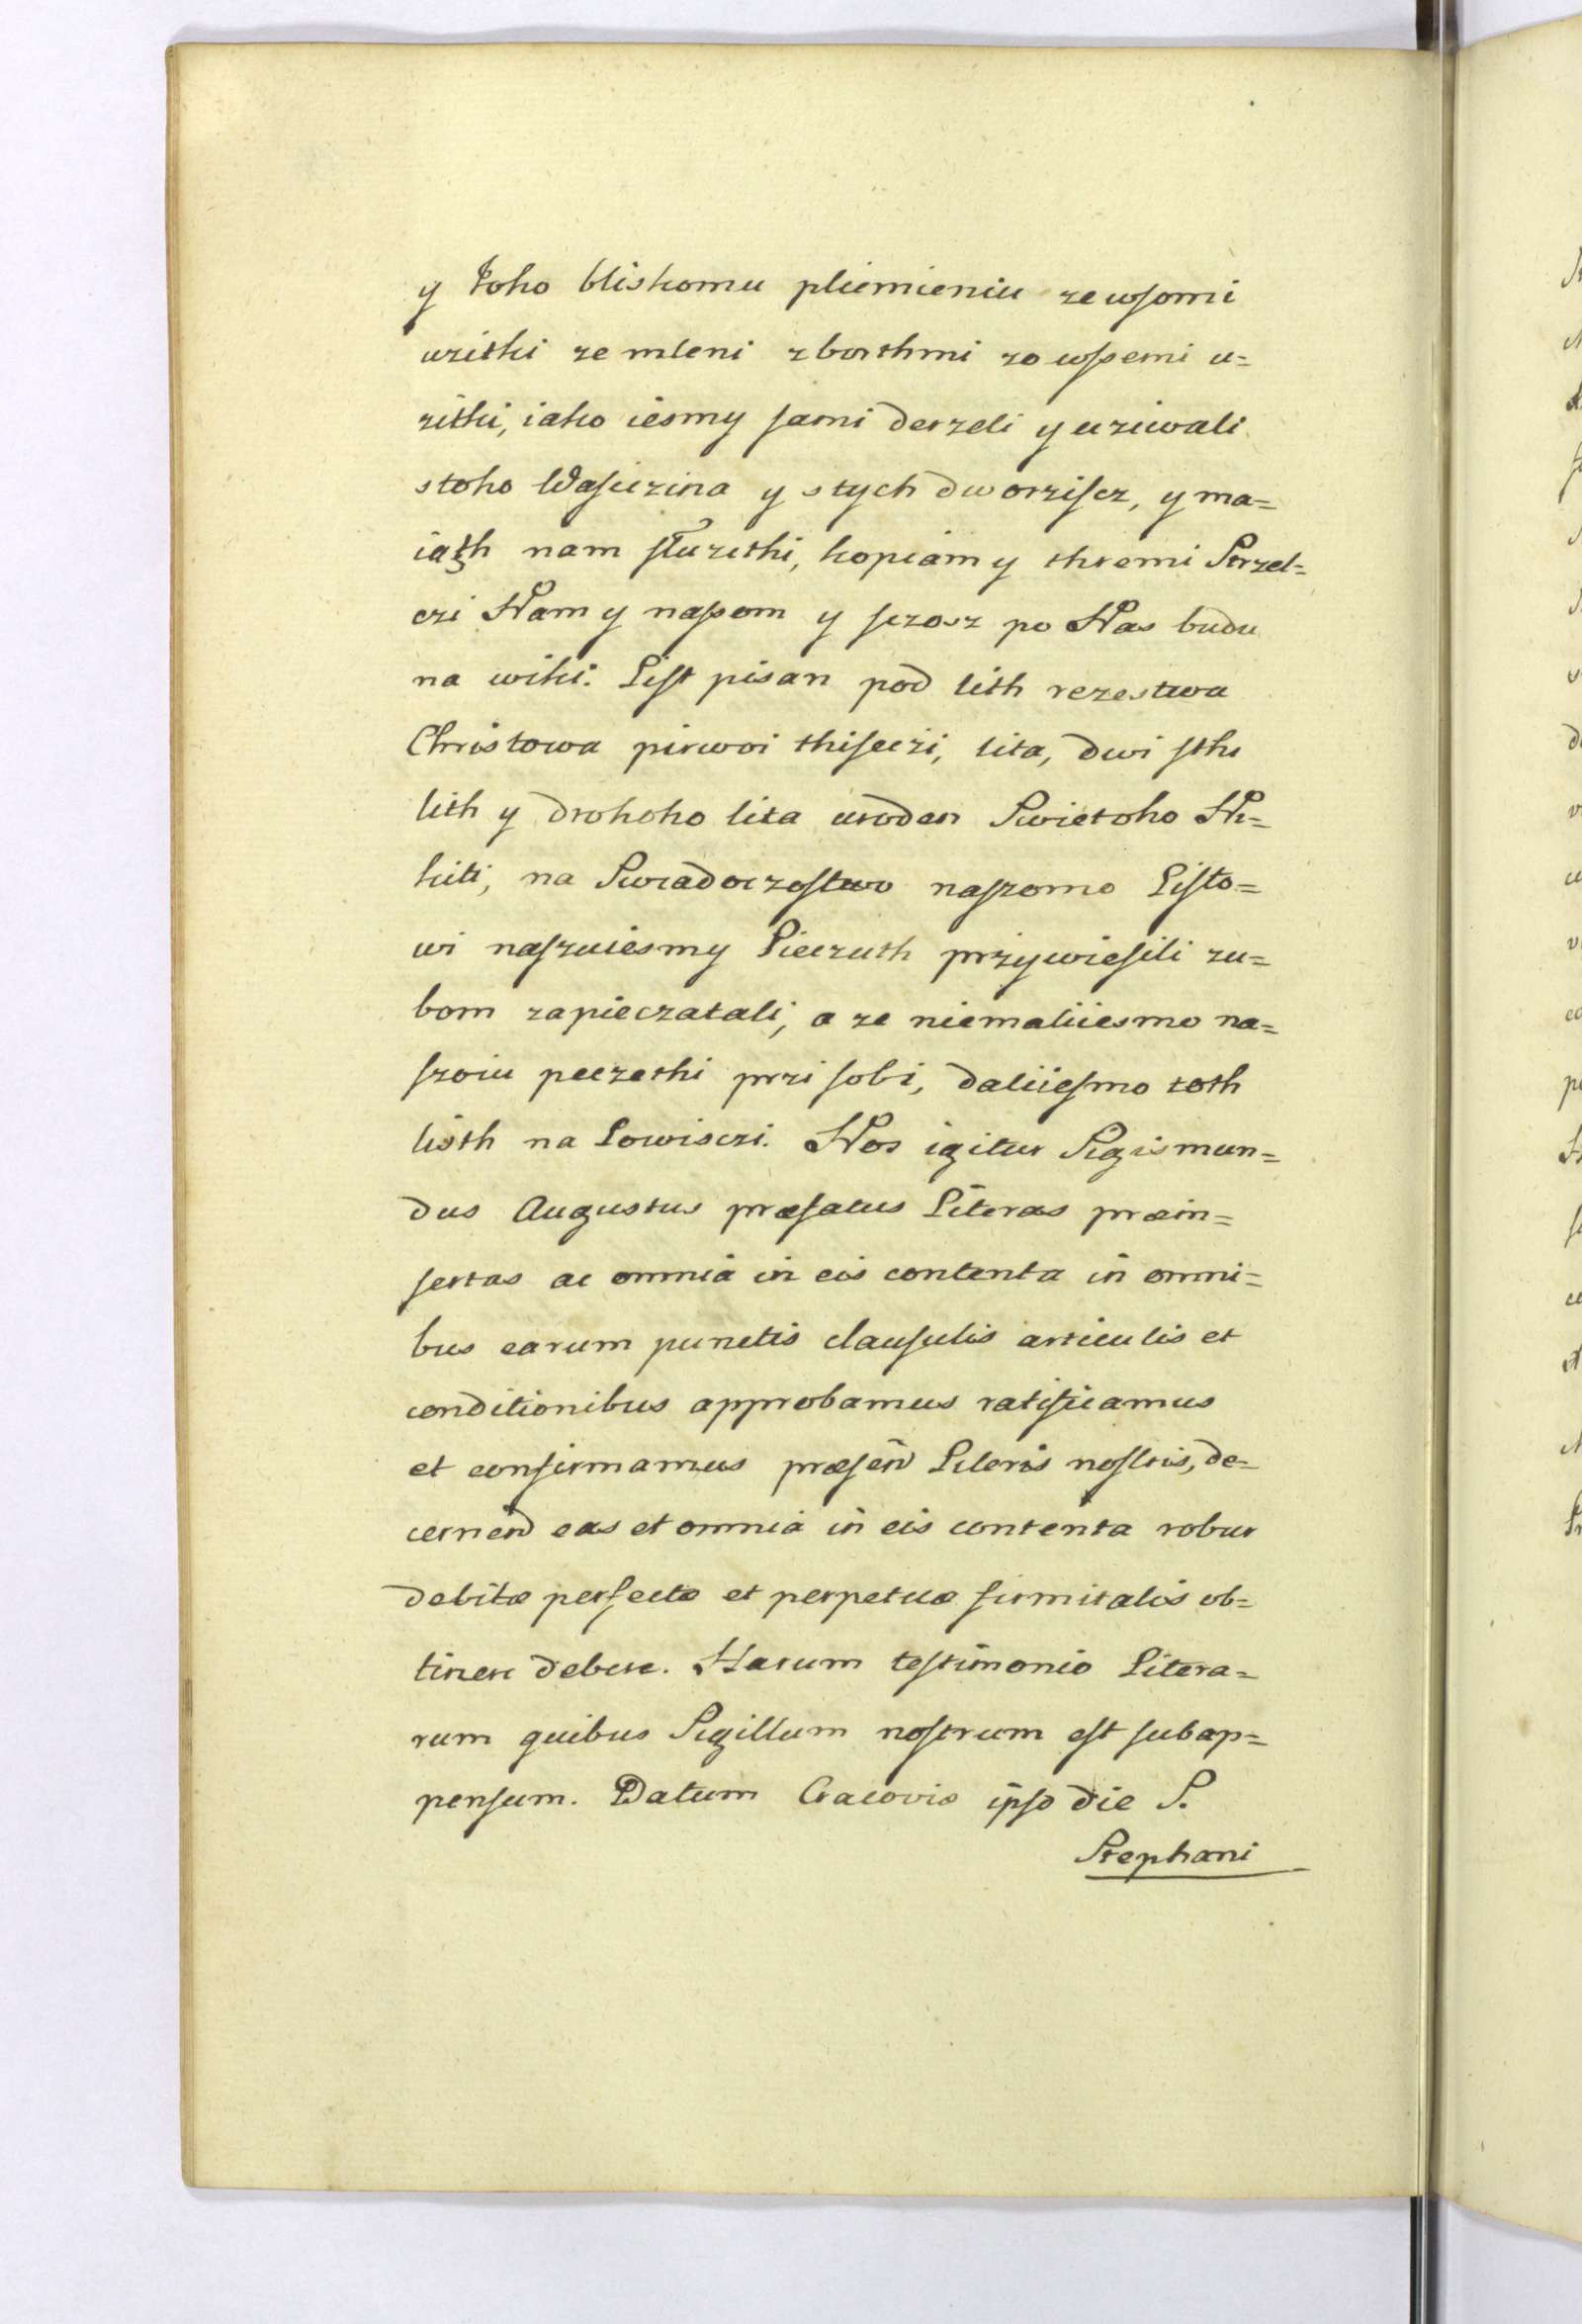 y Joho bliskomu pliemieniu ze wsomi
uzithi ze mleni zborthmi zo wssemi u=
zithi, iako iesmy sami derzeli y uziwali
stoho Wasiczina y stych dworziscz, y ma=
iath nam służithi, kopiam y thremi Strzel=
czi Nam y nassom y sczosz po Nas budu
na wiki. List pisan pod lith rezestwa
Christowa pirwoi thiseczi, lita, dwi sthe
lith y drohoho lita wroden Swietoho Ni=
kiti, na Swiadoczostwo naszomo Listo=
wi naszuiesmy Pieczuth przywiesili zu=
bom zapieczatali, a ze niemaliiesmo na=
szoiu peczethi przi sobi, daliiesmo toth
listh na Lowisczi. Nos igitur Sigismun=
dus Augustus præfatus Literas præin=
sertas ac omnia in eis contenta in omni=
bus earum punctis clausulis articulis et
conditionibus approbamus ratificamus
et confirmamus præsen̄ Literis nostris, de=
cernen̄ eas et omnia in eis contenta robur
debitæ perfectæ et perpetuæ firmitatis ob=
tinere debere. Harum testimonio Litera=
rum quibus Sigillum nostrum est subap=
pensum. Datum Cracoviæ ipso die S.
Stephani